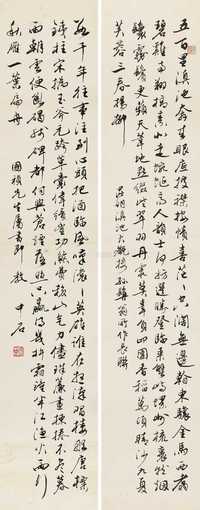 五百里滇池奔來眼底披襟岸幘喜茫〻空闊無邊看東驤金馬西翥
碧雞南翔縞素北走蜿蜒高人韻士何妨選勝登臨趁蟹嶼螺洲梳裹就風
鬟霧鬢更蘋天葦地點綴些翠羽丹霞莫辜負四圍香稻萬頃晴沙九夏
芙蓉三春楊柳 昆明滇池大觀樓孫髯翁所作長聯
數千年往事注到心頭把酒臨風嘆滾〻英雄誰在想漢習樓船唐標
鐵柱宋揮玉斧元跨革囊偉績豐功總費盡移山氣力儘珠簾畫棟捲不及暮
雨朝雲便斷碣殘碑都付與蒼煙落照只贏得幾杵霜鐘半江漁火兩行
秋雁一葉扁舟 國楨先生屬書即教 中石